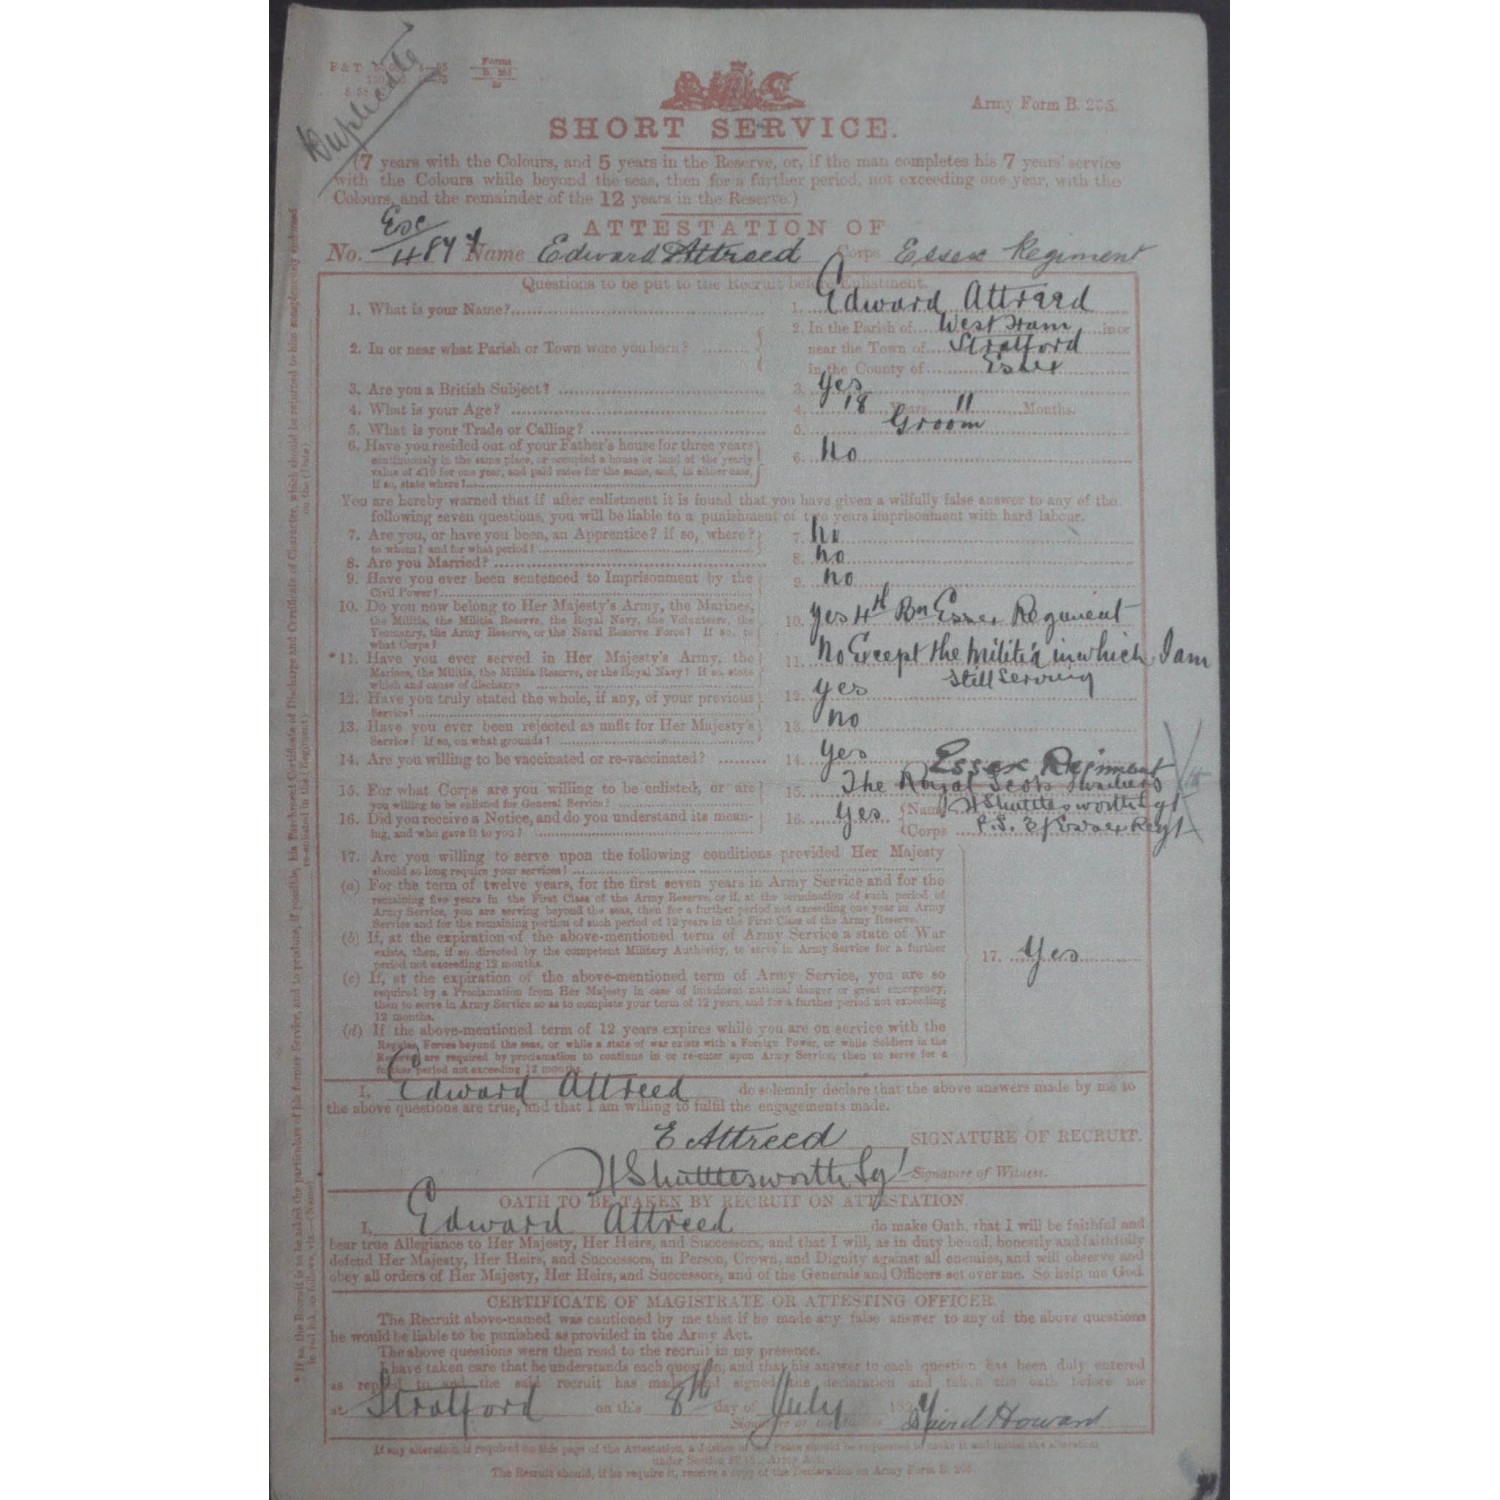 Duplicate
Forms
Army Form B. 265.
SHORT SERVICE.
(7 years with the Colours, and 5 years in the Reserve, or, if the man completes his 7 years' service
with the Colours while beyond the seas, then for a further period, not exceeding one year, with the
Colours, and the remainder of the 12 years in the Reserve.)
ATTESTATION OF
No. Name Edward Attreed Corps Essex Regiment
Questions to be put to the Recruit before Enlistment.
1. What is your Name? 1. Edward Attreed
2. In or near what Parish or Town were you born? 2. In the Parish of West Ham in or
near the Town of Stratford
in the County of Essex
3. Are you a British Subject? 3. Yes
4. What is your Age? 4. 18 Years 11 Months.
5. What is your Trade or Calling? 5. Groom
6. Have you resided out of your Father's house for three years 6. No
continuously in the same place, or occupied a house or land of the yearly
value of £10 for one year, and paid rates for the same, and, in either case,
if so, state where?
You are hereby warned that if after enlistment it is found that you have given a wilfully false answer to any of the
following seven questions, you will be liable to a punishment of two years imprisonment with hard labour.
7. Are you, or have you been, an Apprentice? if so, where? 7. No
to whom? and for what period?
8. Are you Married? 8. no
9. Have you ever been sentenced to Imprisonment by the 9. no
Civil Power?
10. Do you now belong to Her Majesty's Army, the Marines, 10. yes 4th Bn Essex Regiment
the Militia, the Militia Reserve, the Royal Navy, the Volunteers, the
Yeomanry, the Army Reserve, or the Naval Reserve Force? If so, to
what Corps?
*11. Have you ever served in Her Majesty's Army, the 11. No Except the Militia in which I am
Marines, the Militia Reserve, or the Royal Navy? If so, state still serving
which and cause of discharge
12. Have you truly stated the whole, if any, of your previous 12. yes
Service?
13. Have you ever been rejected as unfit for Her Majesty's 13. no
Service? If so, on what grounds?
14. Are you willing to be vaccinated or re-vaccinated? 14. Yes
Essex Regiment
15. For what Corps are you willing to be enlisted, or are 15. The Royal Scots
you willing to be enlisted for General Service?
16. Did you receive a Notice, and do you understand its mean- 16. Yes Name H Shuttlesworth Sgt
ing, and who gave it to you? Corps P.S. 3/Essex Regt
17. Are you willing to serve upon the following conditions provided Her Majesty
should so long require your services?
(a) For the term of twelve years, for the first seven years in Army Service and for the
remaining five years in the First Class of the Army Reserve, or if, at the termination of such period of
Army Service, you are serving beyond the seas, then for a further period not exceeding one year in Army
Service and for the remaining portion of such period of 12 years in the First Class of the Army Reserve.
(b) If, at the expiration of the above-mentioned term of Army Service a state of War
exists, then, if so directed by the competent Military Authority, to serve in Army Service for a further
period not exceeding 12 months. 17. Yes
(c) If, at the expiration of the above-mentioned term of Army Service, you are so
required by a Proclamation from Her Majesty in case of imminent national danger or great emergency,
then to serve in Army Service so as to complete your term of 12 years, and for a further period not exceeding
12 months.
(d) If the above-mentioned term of 12 years expires while you are on service with the
Regular Forces beyond the seas, or while a state of war exists with a Foreign Power, or while Soldiers in the
Reserve are required by proclamation to continue in or re-enter upon Army Service, then to serve for a
further period not exceeding 12 months.
I, Edward Attreed do solemnly declare that the above answers made by me to
the above questions are true, and that I am willing to fulfil the engagements made.
E Attreed SIGNATURE OF RECRUIT.
H Shuttlesworth Sgt Signature of Witness.
OATH TO BE TAKEN BY RECRUIT ON ATTESTATION.
I, Edward Attreed do make Oath, that I will be faithful and
bear true Allegiance to Her Majesty, Her Heirs, and Successors, and that I will, as in duty bound, honestly and faithfully
defend Her Majesty, Her Heirs, and Successors, in Person, Crown, and Dignity against all enemies, and will observe and
obey all orders of Her Majesty, Her Heirs, and Successors, and of the Generals and Officers set over me. So help me God.
CERTIFICATE OF MAGISTRATE OR ATTESTING OFFICER.
The Recruit above-named was cautioned by me that if he made any false answer to any of the above questions
he would be liable to be punished as provided in the Army Act.
The above questions were then read to the recruit in my presence.
I have taken care that he understands each question, and that his answer to each question has been duly entered
as replied to, and the said recruit has made and signed the declaration and taken the oath before me
at Stratford on this 8th day of July
Signature of the Justice Howard
If any alteration is required on this page of the Attestation, a Justice of the Peace should be requested to make it and initial the alteration
under Section Army Act.
The Recruit should, if he require it, receive a copy of the Declaration on Army Form B. 265.
* If so, the Recruit is to be asked the particulars of his former Service, and to produce, if possible, his Parchment Certificate of Discharge and Certificate of Character, which should be returned to him conspicuously endorsed
in red ink, as follows, viz.—(Name) re-enlisted in the (Regiment) on the (Date)